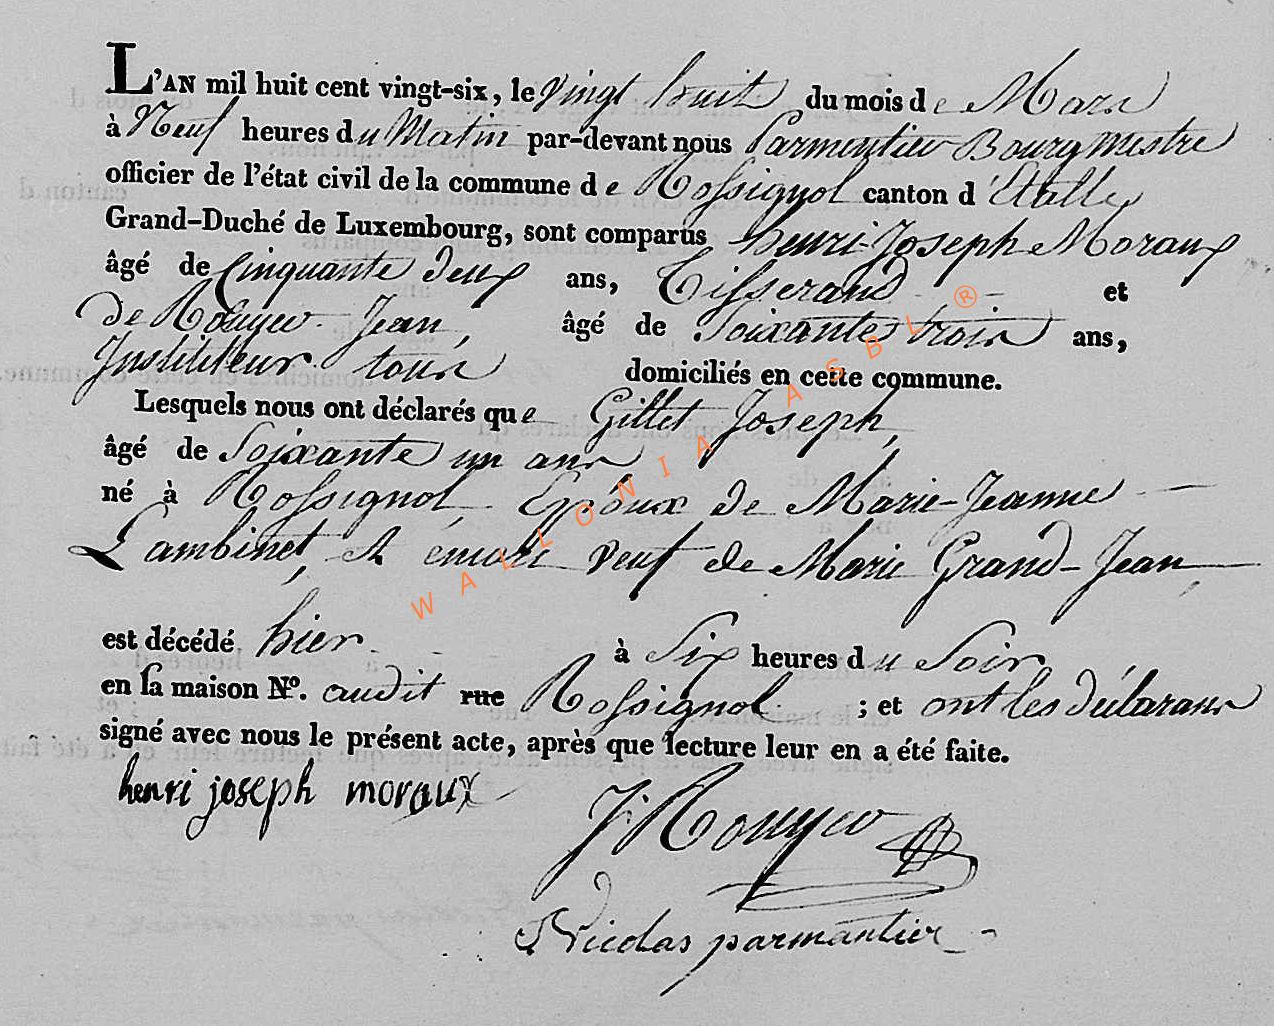 L'AN mil huit cent vingt-six, le Vingt huit du mois de Mars
à Neuf heures du Matin par-devant nous Parmentier Bourgmestre
officier de l'état civil de la commune de Rossignol canton d'Etalle
Grand-Duché de Luxembourg, sont comparus henri-Joseph Moraux
âgé de Cinquante deux ans, Tisserand et
de Rouyer Jean, âgé de Soixante trois ans,
Instituteur tous domiciliés en cette commune.
Lesquels nous ont déclarés que Gillet Joseph,
âgé de Soixante un ans
né à Rossignol Epoux de Marie-Jeanne
Lambinet, et encore veuf de Marie Grand-Jean
est décédé hier à Six heures du Soir
en sa maison No. audit rue Rossignol ; et ont les déclarans
signé avec nous le présent acte, après que lecture leur en a été faite.
henri joseph moraux
J. Rouyer
Nicolas parmantier
WALLONIA ASBL ®